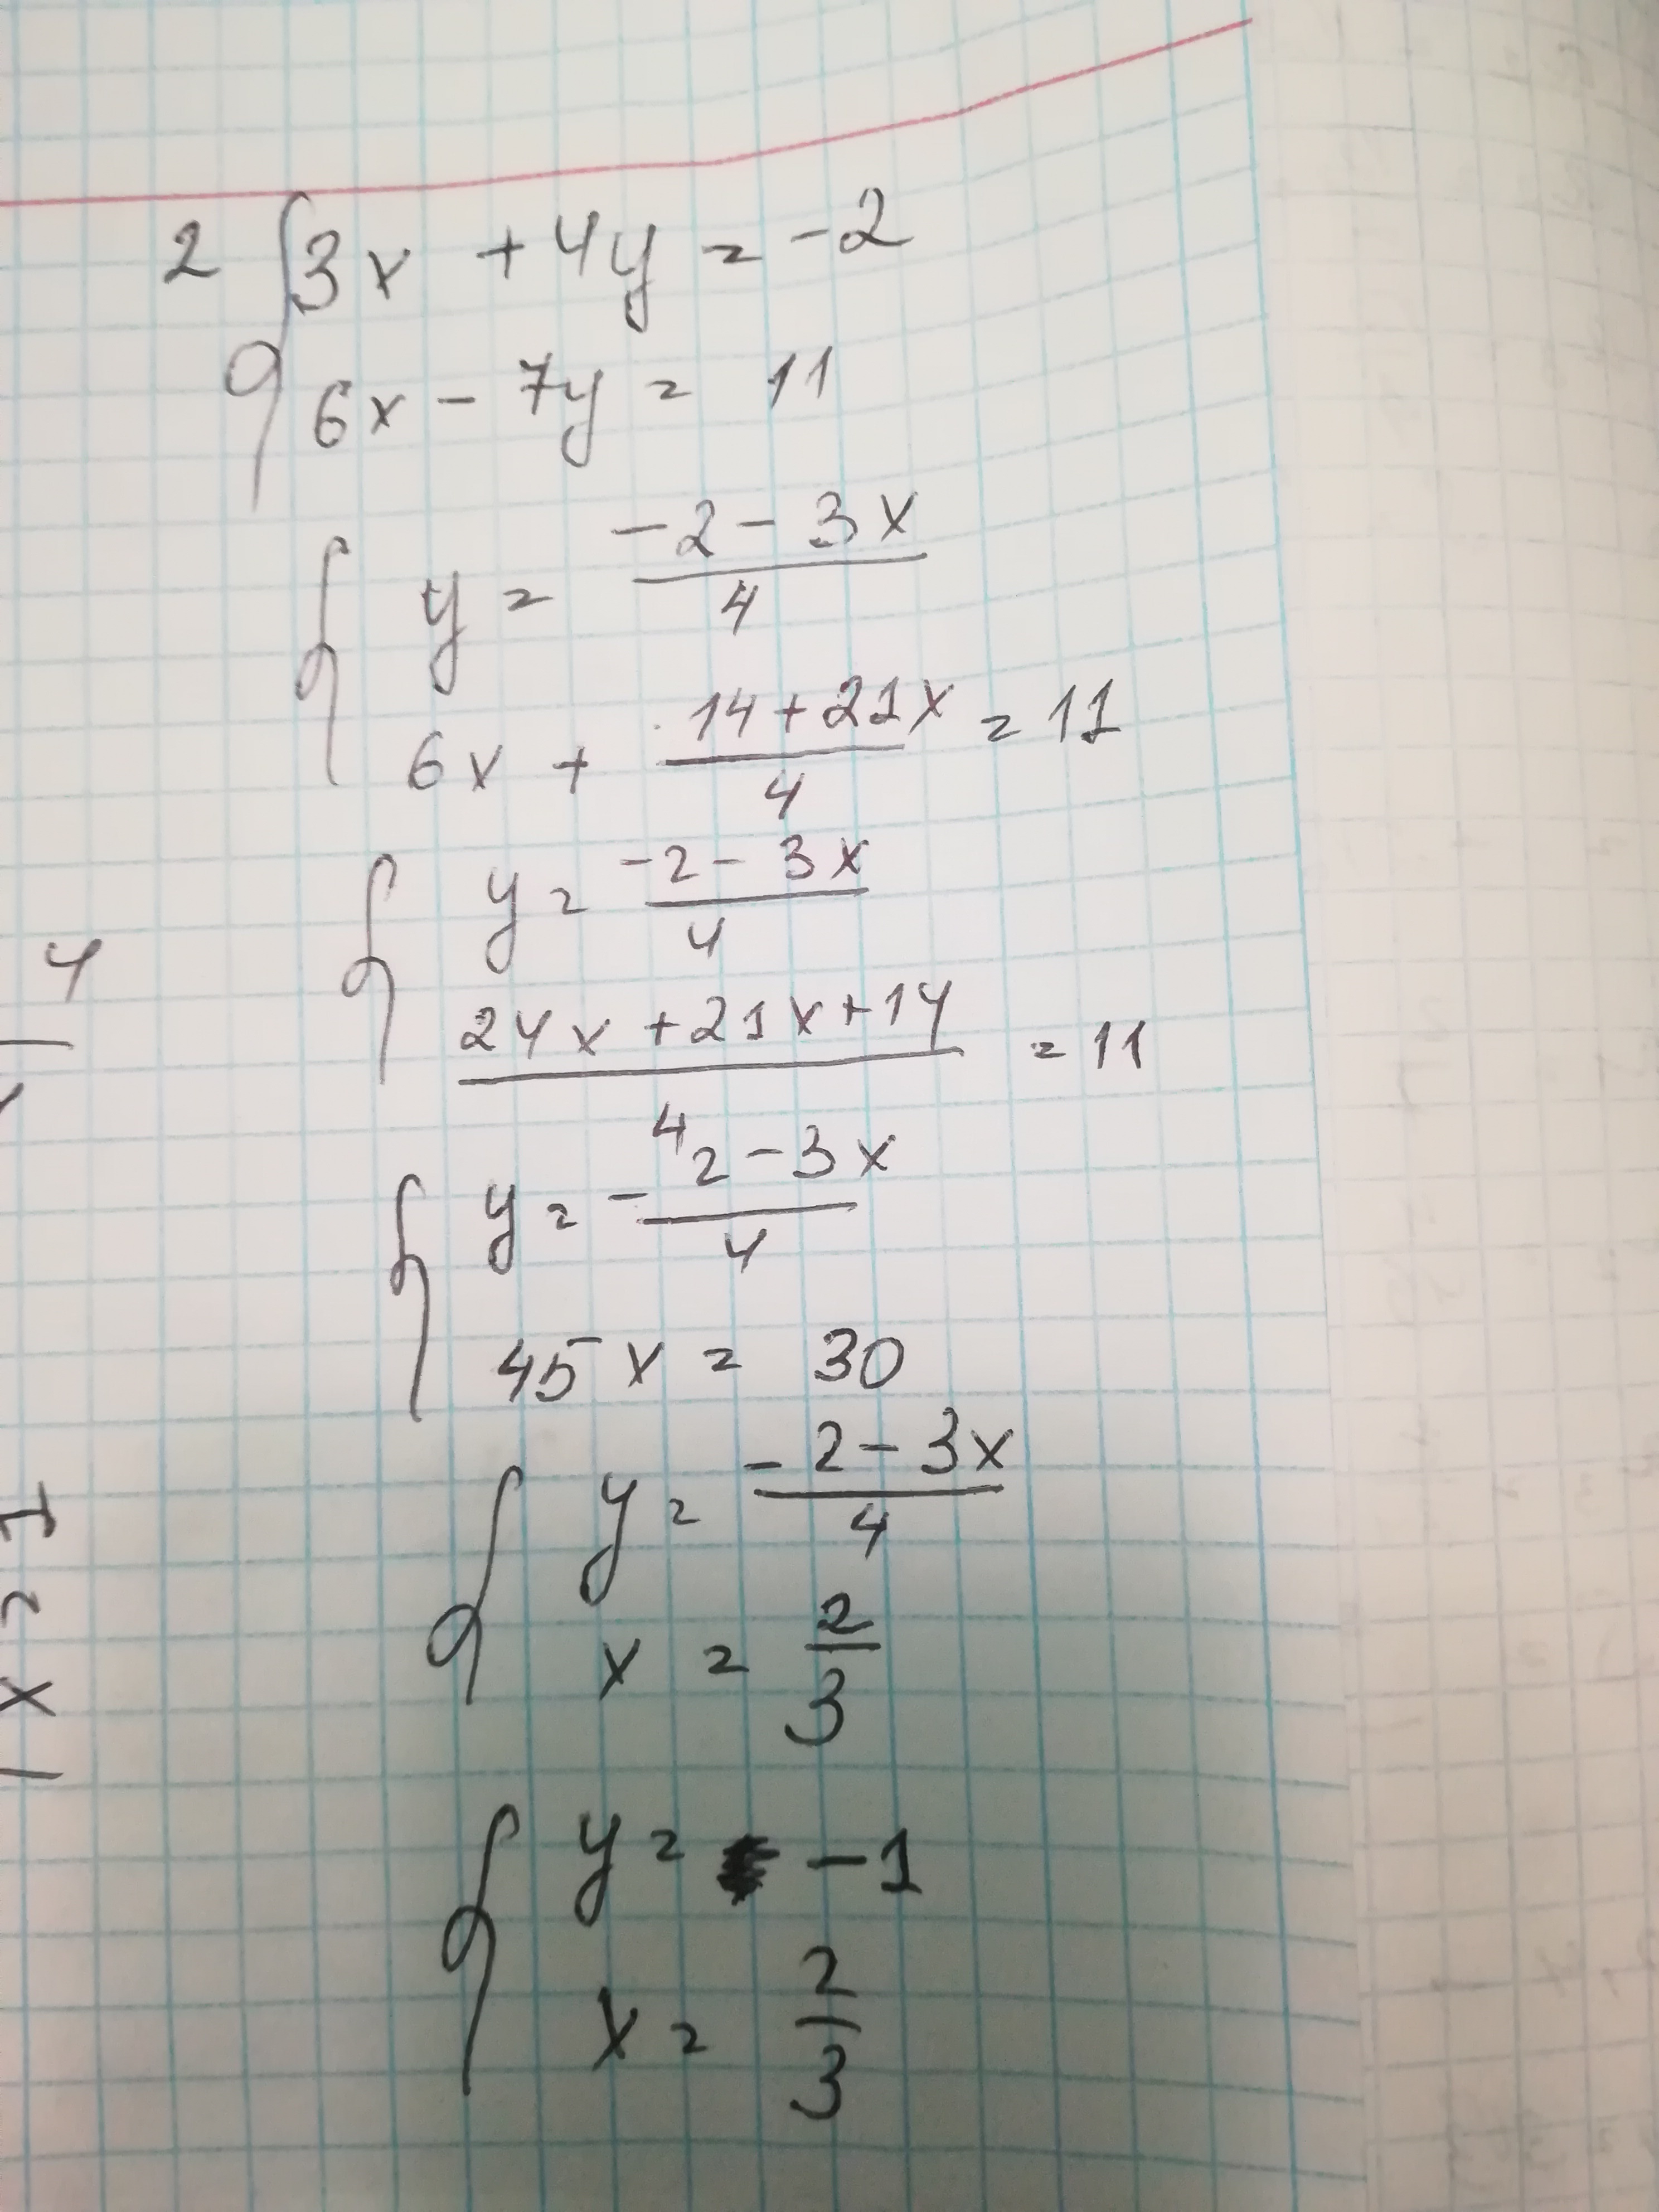 2 { 3x + 4y = -2
6x - 7y = 11
{ y = (-2 - 3x)/4
6x + (14 + 21x)/4 = 11
{ y = (-2 - 3x)/4
(24x + 21x + 14)/4 = 11
{ y = (-2 - 3x)/4
45x = 30
{ y = (-2 - 3x)/4
x = 2/3
{ y = -1
x = 2/3
4
x = 1